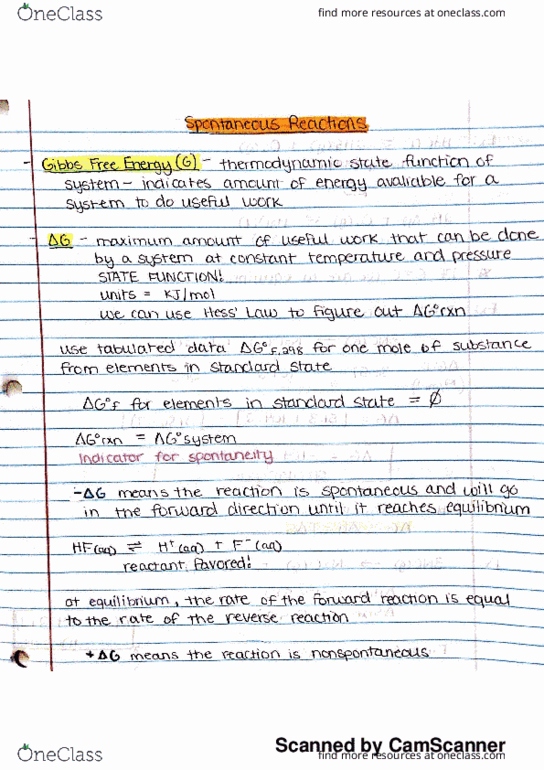 OneClass
find more resources at oneclass.com
Spontaneous Reactions
- Gibbs Free Energy (G) - thermodynamic state function of
system - indicates amount of energy avaliable for a
system to do useful work
- ΔG - maximum amount of useful work that can be done
by a system at constant temperature and pressure
STATE FUNCTION!
units = KJ/mol
we can use Hess' Law to figure out ΔG°rxn
use tabulated data ΔG°f,298 for one mole of substance
from elements in standard state
ΔG°f for elements in standard state = Ø
ΔG°rxn = ΔG°system
Indicator for spontaneity
-ΔG means the reaction is spontaneous and will go
in the forward direction until it reaches equilibrium
HF(aq) ⇌ H⁺(aq) + F⁻(aq)
reactant favored!
at equilibrium, the rate of the forward reaction is equal
to the rate of the reverse reaction
+ΔG means the reaction is nonspontaneous
Scanned by CamScanner
OneClass
find more resources at oneclass.com